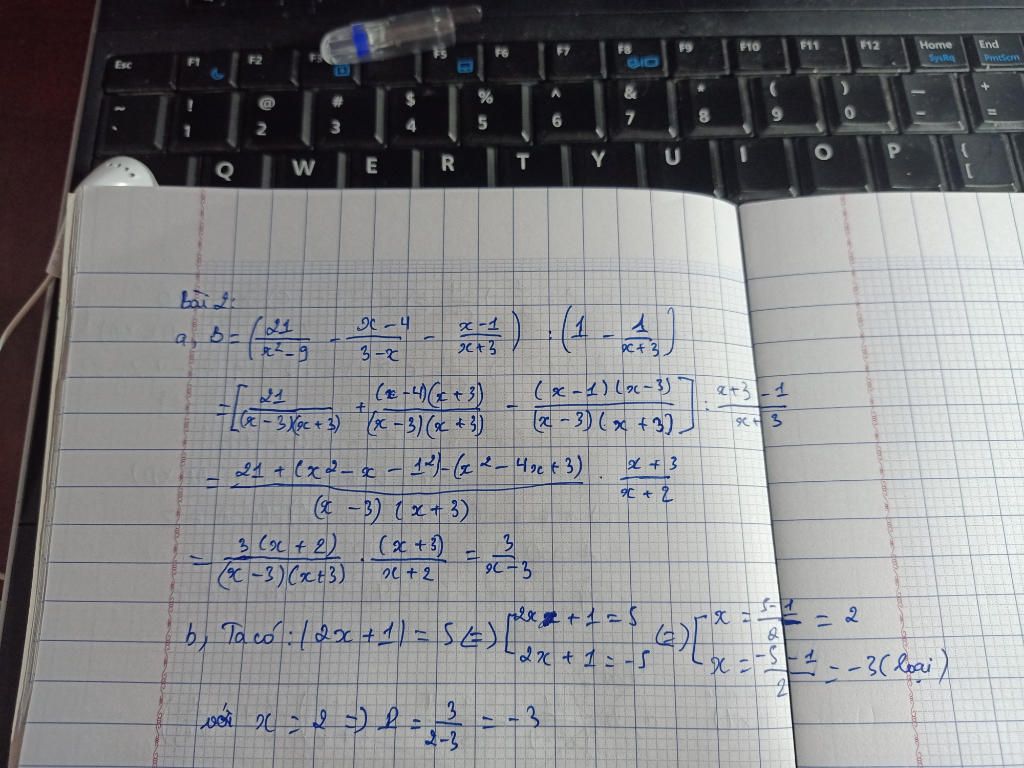 Esc F1 F2 F3 F5 F6 F7 F8 F9 F10 F11 F12 Home End
SysRq PrntScrn
~ ! @ # $ % ^ & * ( ) — +
` 1 2 3 4 5 6 7 8 9 0 - =
Q W E R T Y U I O P { [
Bài 2:
a, B = (21/(x²-9) - (x-4)/(3-x) - (x-1)/(x+3)) : (1 - 1/(x+3))
= [21/((x-3)(x+3)) + ((x-4)(x+3))/((x-3)(x+3)) - ((x-1)(x-3))/((x-3)(x+3))] : (x+3-1)/(x+3)
= (21+(x²-x-12)-(x²-4x+3))/((x-3)(x+3)) . (x+3)/(x+2)
= (3(x+2))/((x-3)(x+3)) . (x+3)/(x+2) = 3/(x-3)
b, Ta có: |2x+1| = 5 (=) [2x+1=5 2x+1=-5 (=) [x = (5-1)/2 = 2 x = (-5-1)/2 = -3 (loại)
với x = 2 =) B = 3/(2-3) = -3